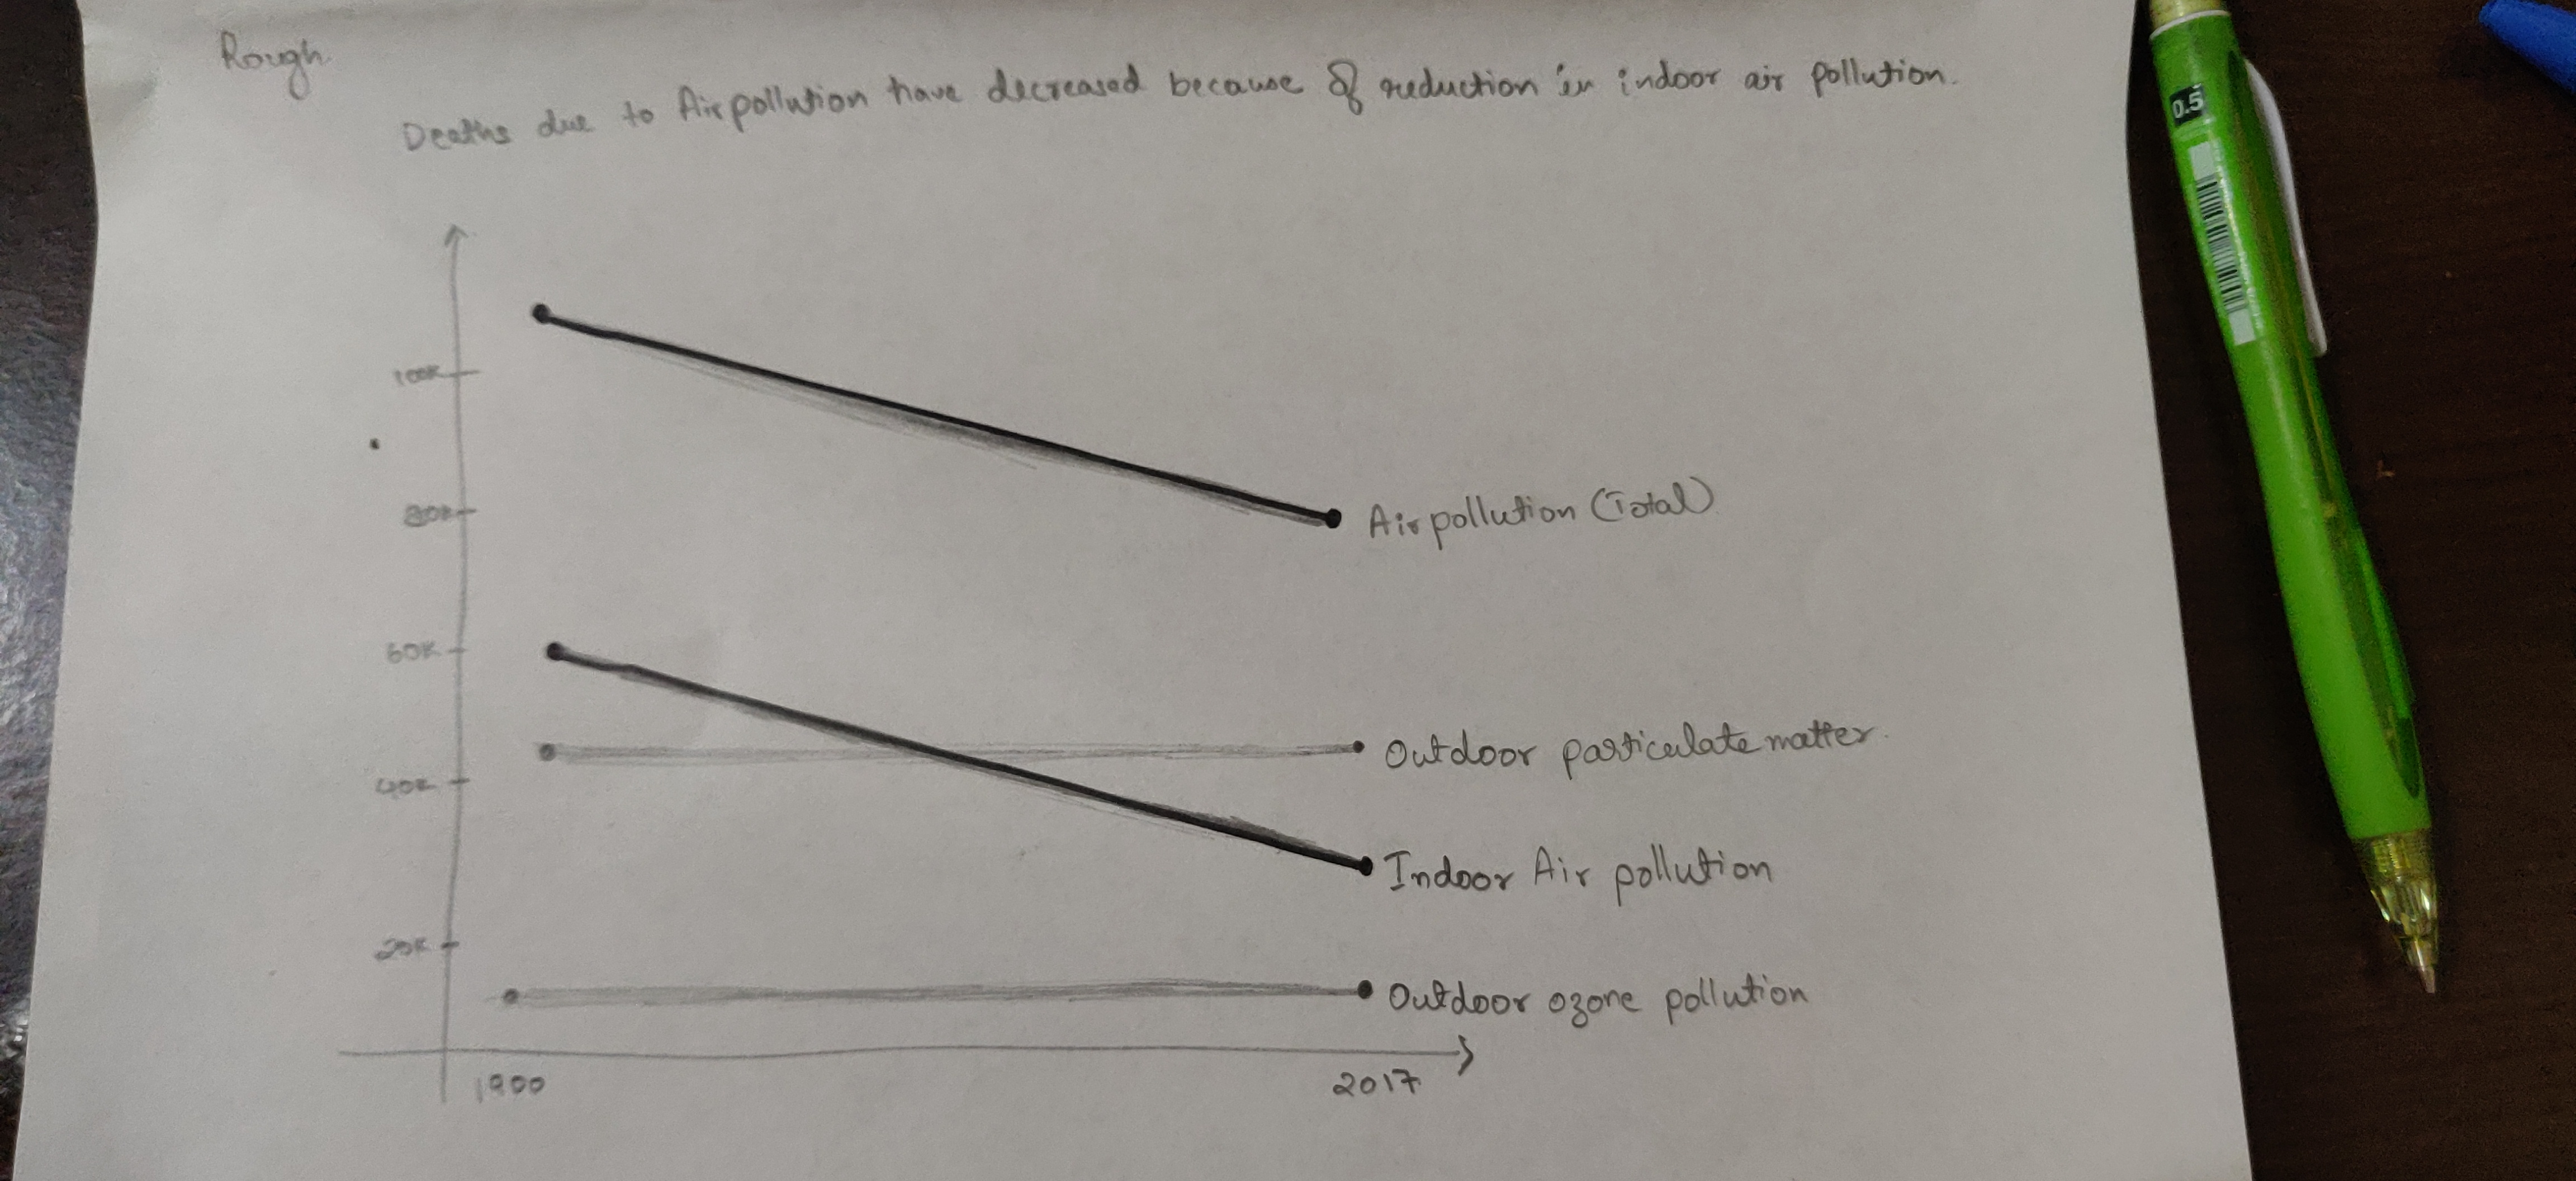 Rough
Deaths due to Air pollution have decreased because of reduction in indoor air pollution.
100K
80K
60K
40K
20K
Air pollution (Total)
Outdoor particulate matter.
Indoor Air pollution
Outdoor ozone pollution
1900
2017
0.5